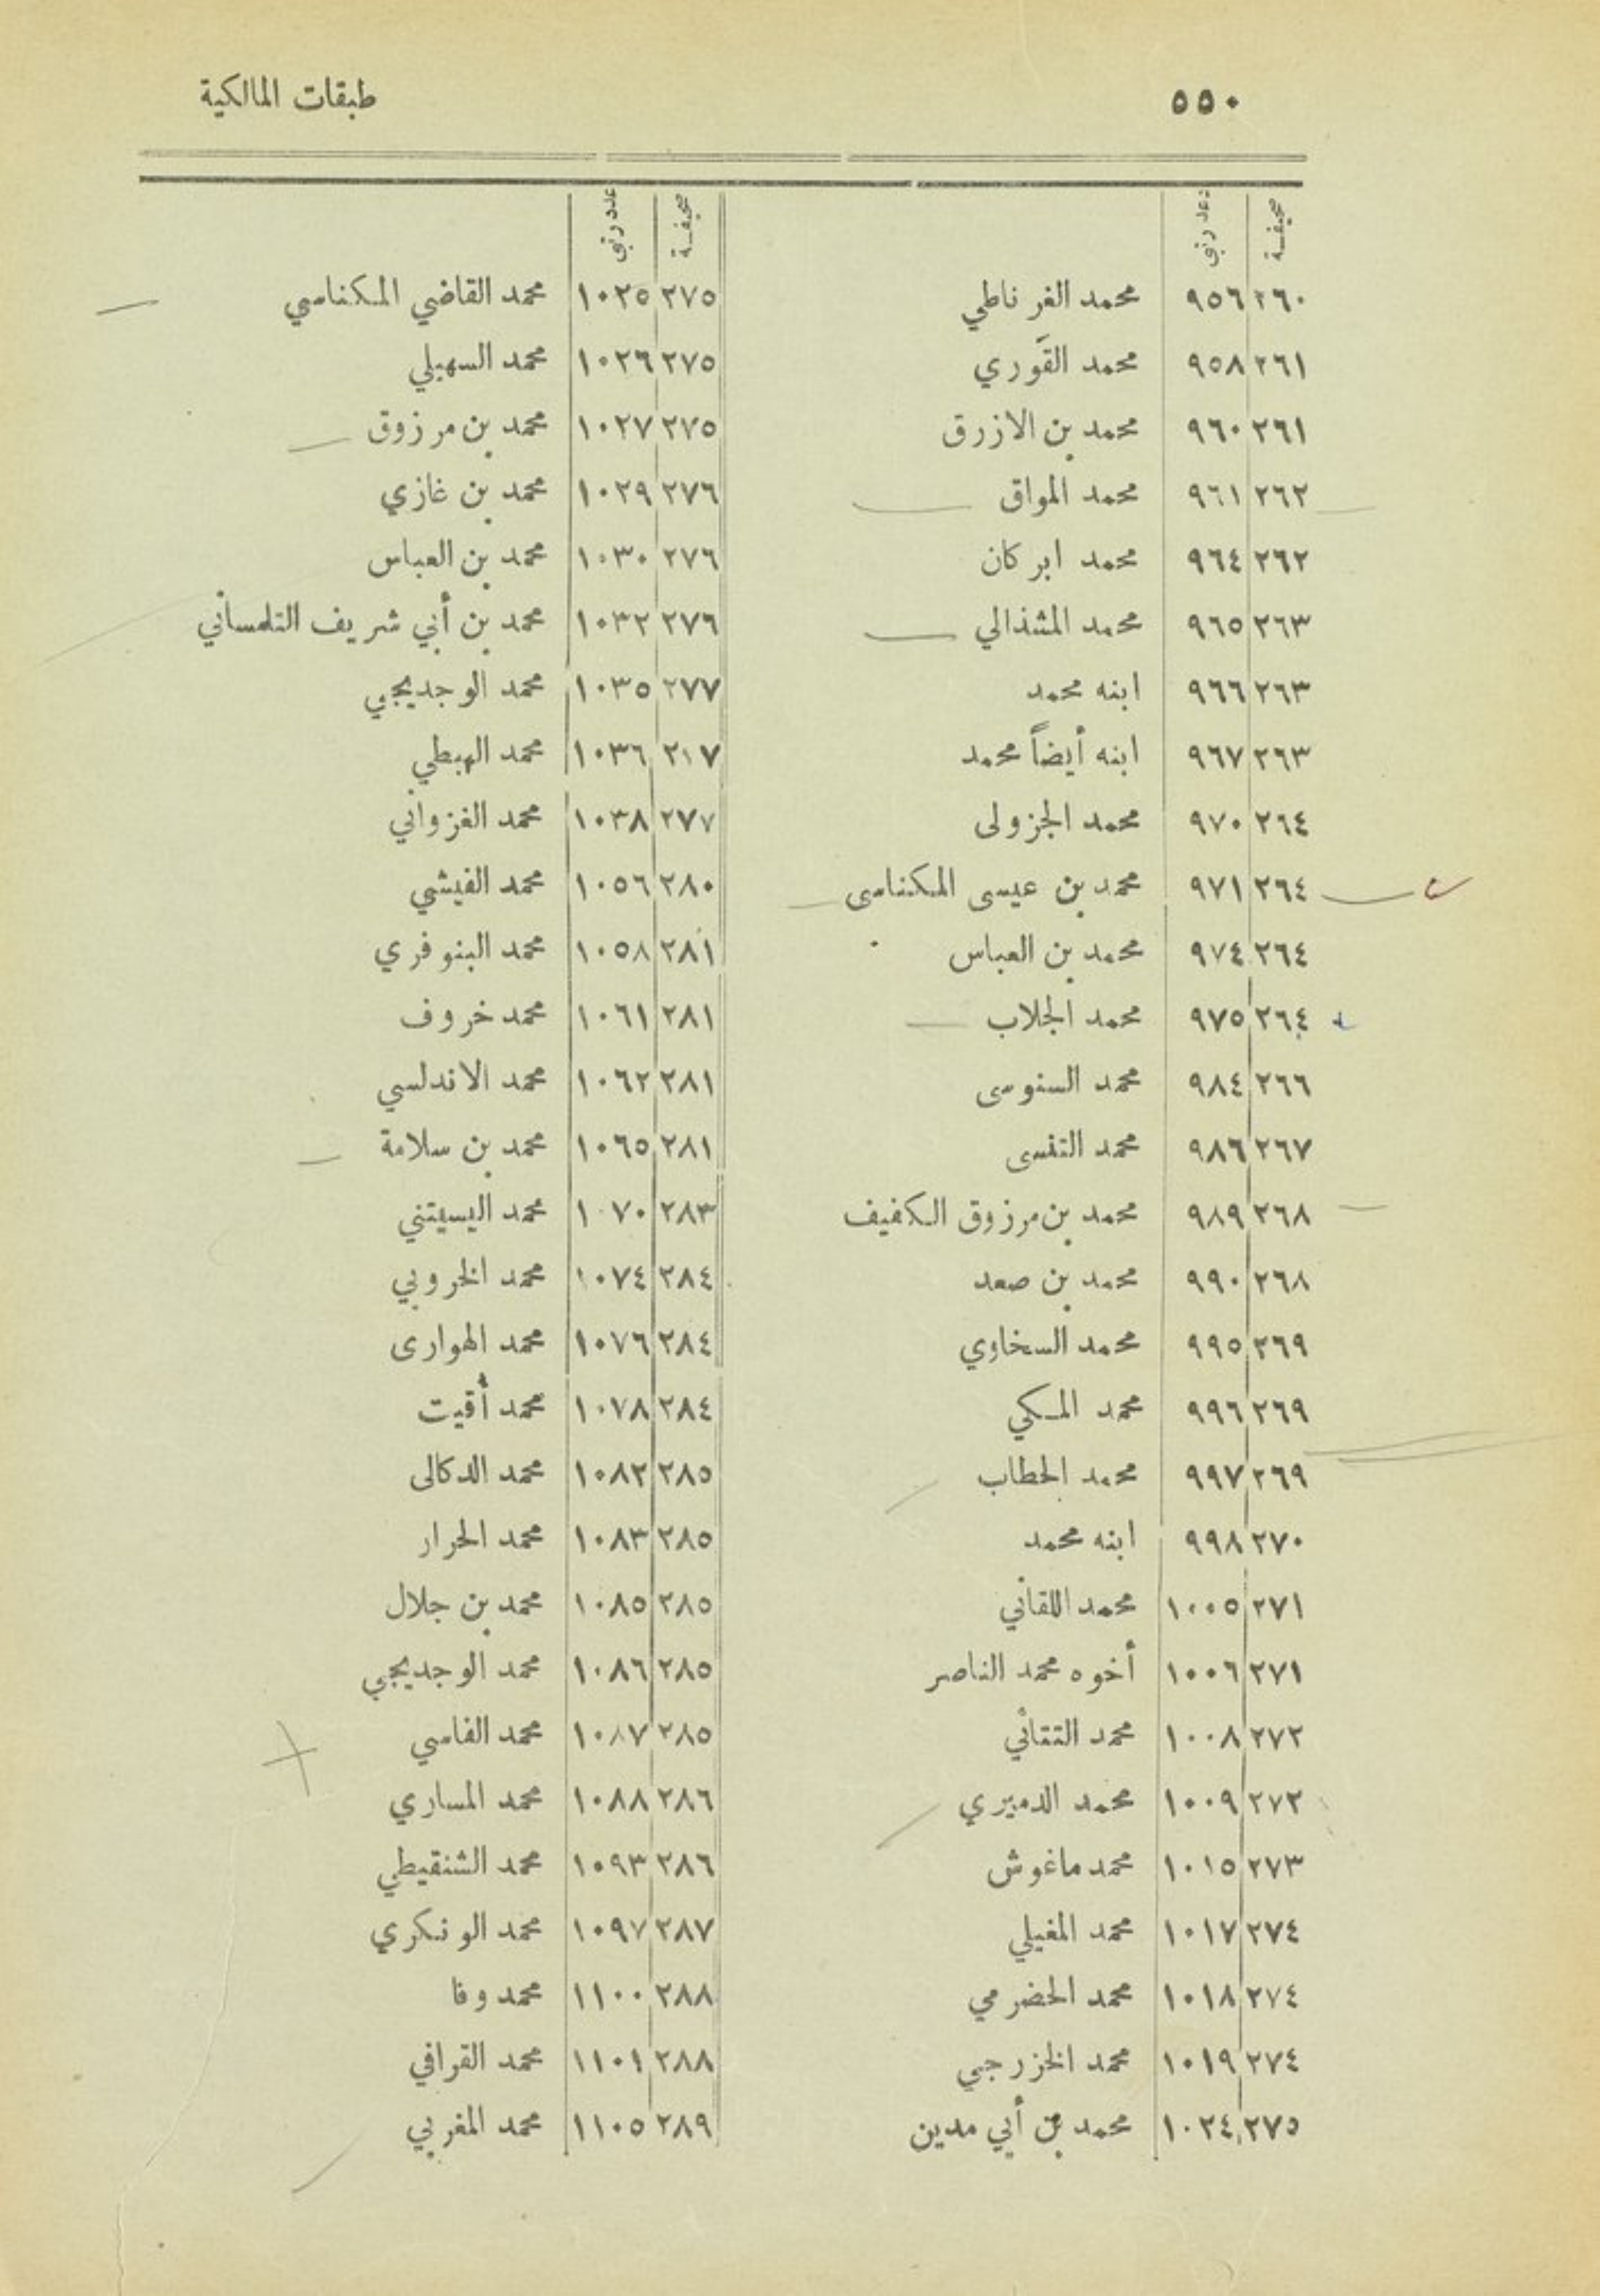 ٥٥٠ طبقات المالكية
صحيفة عدد رتبي
٢٦٠ ٩٥٦ محمد الغرناطي
٢٦١ ٩٥٨ محمد القَوري
٢٦١ ٩٦٠ محمد بن الازرق
٢٦٢ ٩٦١ محمد المواق
٢٦٢ ٩٦٤ محمد ابركان
٢٦٣ ٩٦٥ محمد المشذالي
٢٦٣ ٩٦٦ ابنه محمد
٢٦٣ ٩٦٧ ابنه أيضاً محمد
٢٦٤ ٩٧٠ محمد الجزولى
٢٦٤ ٩٧١ محمد بن عيسى المكناسى
٢٦٤ ٩٧٤ محمد بن العباس
٢٦٤ ٩٧٥ محمد الجلاب
٢٦٦ ٩٨٤ محمد السنوسى
٢٦٧ ٩٨٦ محمد التنسى
٢٦٨ ٩٨٩ محمد بن مرزوق الكفيف
٢٦٨ ٩٩٠ محمد بن صعد
٢٦٩ ٩٩٥ محمد السخاوي
٢٦٩ ٩٩٦ محمد المكي
٢٦٩ ٩٩٧ محمد الحطاب
٢٧٠ ٩٩٨ ابنه محمد
٢٧١ ١٠٠٥ محمد اللقاني
٢٧١ ١٠٠٦ أخوه محمد الناصر
٢٧٢ ١٠٠٨ محمد التتائي
٢٧٢ ١٠٠٩ محمد الدميري
٢٧٣ ١٠١٥ محمد ماغوش
٢٧٤ ١٠١٧ محمد المغيلي
٢٧٤ ١٠١٨ محمد الحضرمي
٢٧٤ ١٠١٩ محمد الخزرجي
٢٧٥ ١٠٢٤ محمد بن أبي مدين
صحيفة عدد رتبي
٢٧٥ ١٠٢٥ محمد القاضي المكناسي
٢٧٥ ١٠٢٦ محمد السهيلي
٢٧٥ ١٠٢٧ محمد بن مرزوق
٢٧٦ ١٠٢٩ محمد بن غازي
٢٧٦ ١٠٣٠ محمد بن العباس
٢٧٦ ١٠٣٢ محمد بن أبي شريف التلمساني
٢٧٧ ١٠٣٥ محمد الوجديجي
٢١٧ ١٠٣٦ محمد الهبطي
٢٧٧ ١٠٣٨ محمد الغزواني
٢٨٠ ١٠٥٦ محمد الفيشي
٢٨١ ١٠٥٨ محمد البنوفري
٢٨١ ١٠٦١ محمد خروف
٢٨١ ١٠٦٢ محمد الاندلسي
٢٨١ ١٠٦٥ محمد بن سلامة
٢٨٣ ١٠٧٠ محمد اليسيتني
٢٨٤ ١٠٧٤ محمد الخروبي
٢٨٤ ١٠٧٦ محمد الهوارى
٢٨٤ ١٠٧٨ محمد أقيت
٢٨٥ ١٠٨٢ محمد الدكالى
٢٨٥ ١٠٨٣ محمد الحرار
٢٨٥ ١٠٨٥ محمد بن جلال
٢٨٥ ١٠٨٦ محمد الوجديجي
٢٨٥ ١٠٨٧ محمد الفاسي
٢٨٦ ١٠٨٨ محمد المساري
٢٨٦ ١٠٩٣ محمد الشنقيطي
٢٨٧ ١٠٩٧ محمد الونكري
٢٨٨ ١١٠٠ محمد وفا
٢٨٨ ١١٠١ محمد القرافي
٢٨٩ ١١٠٥ محمد المغربي